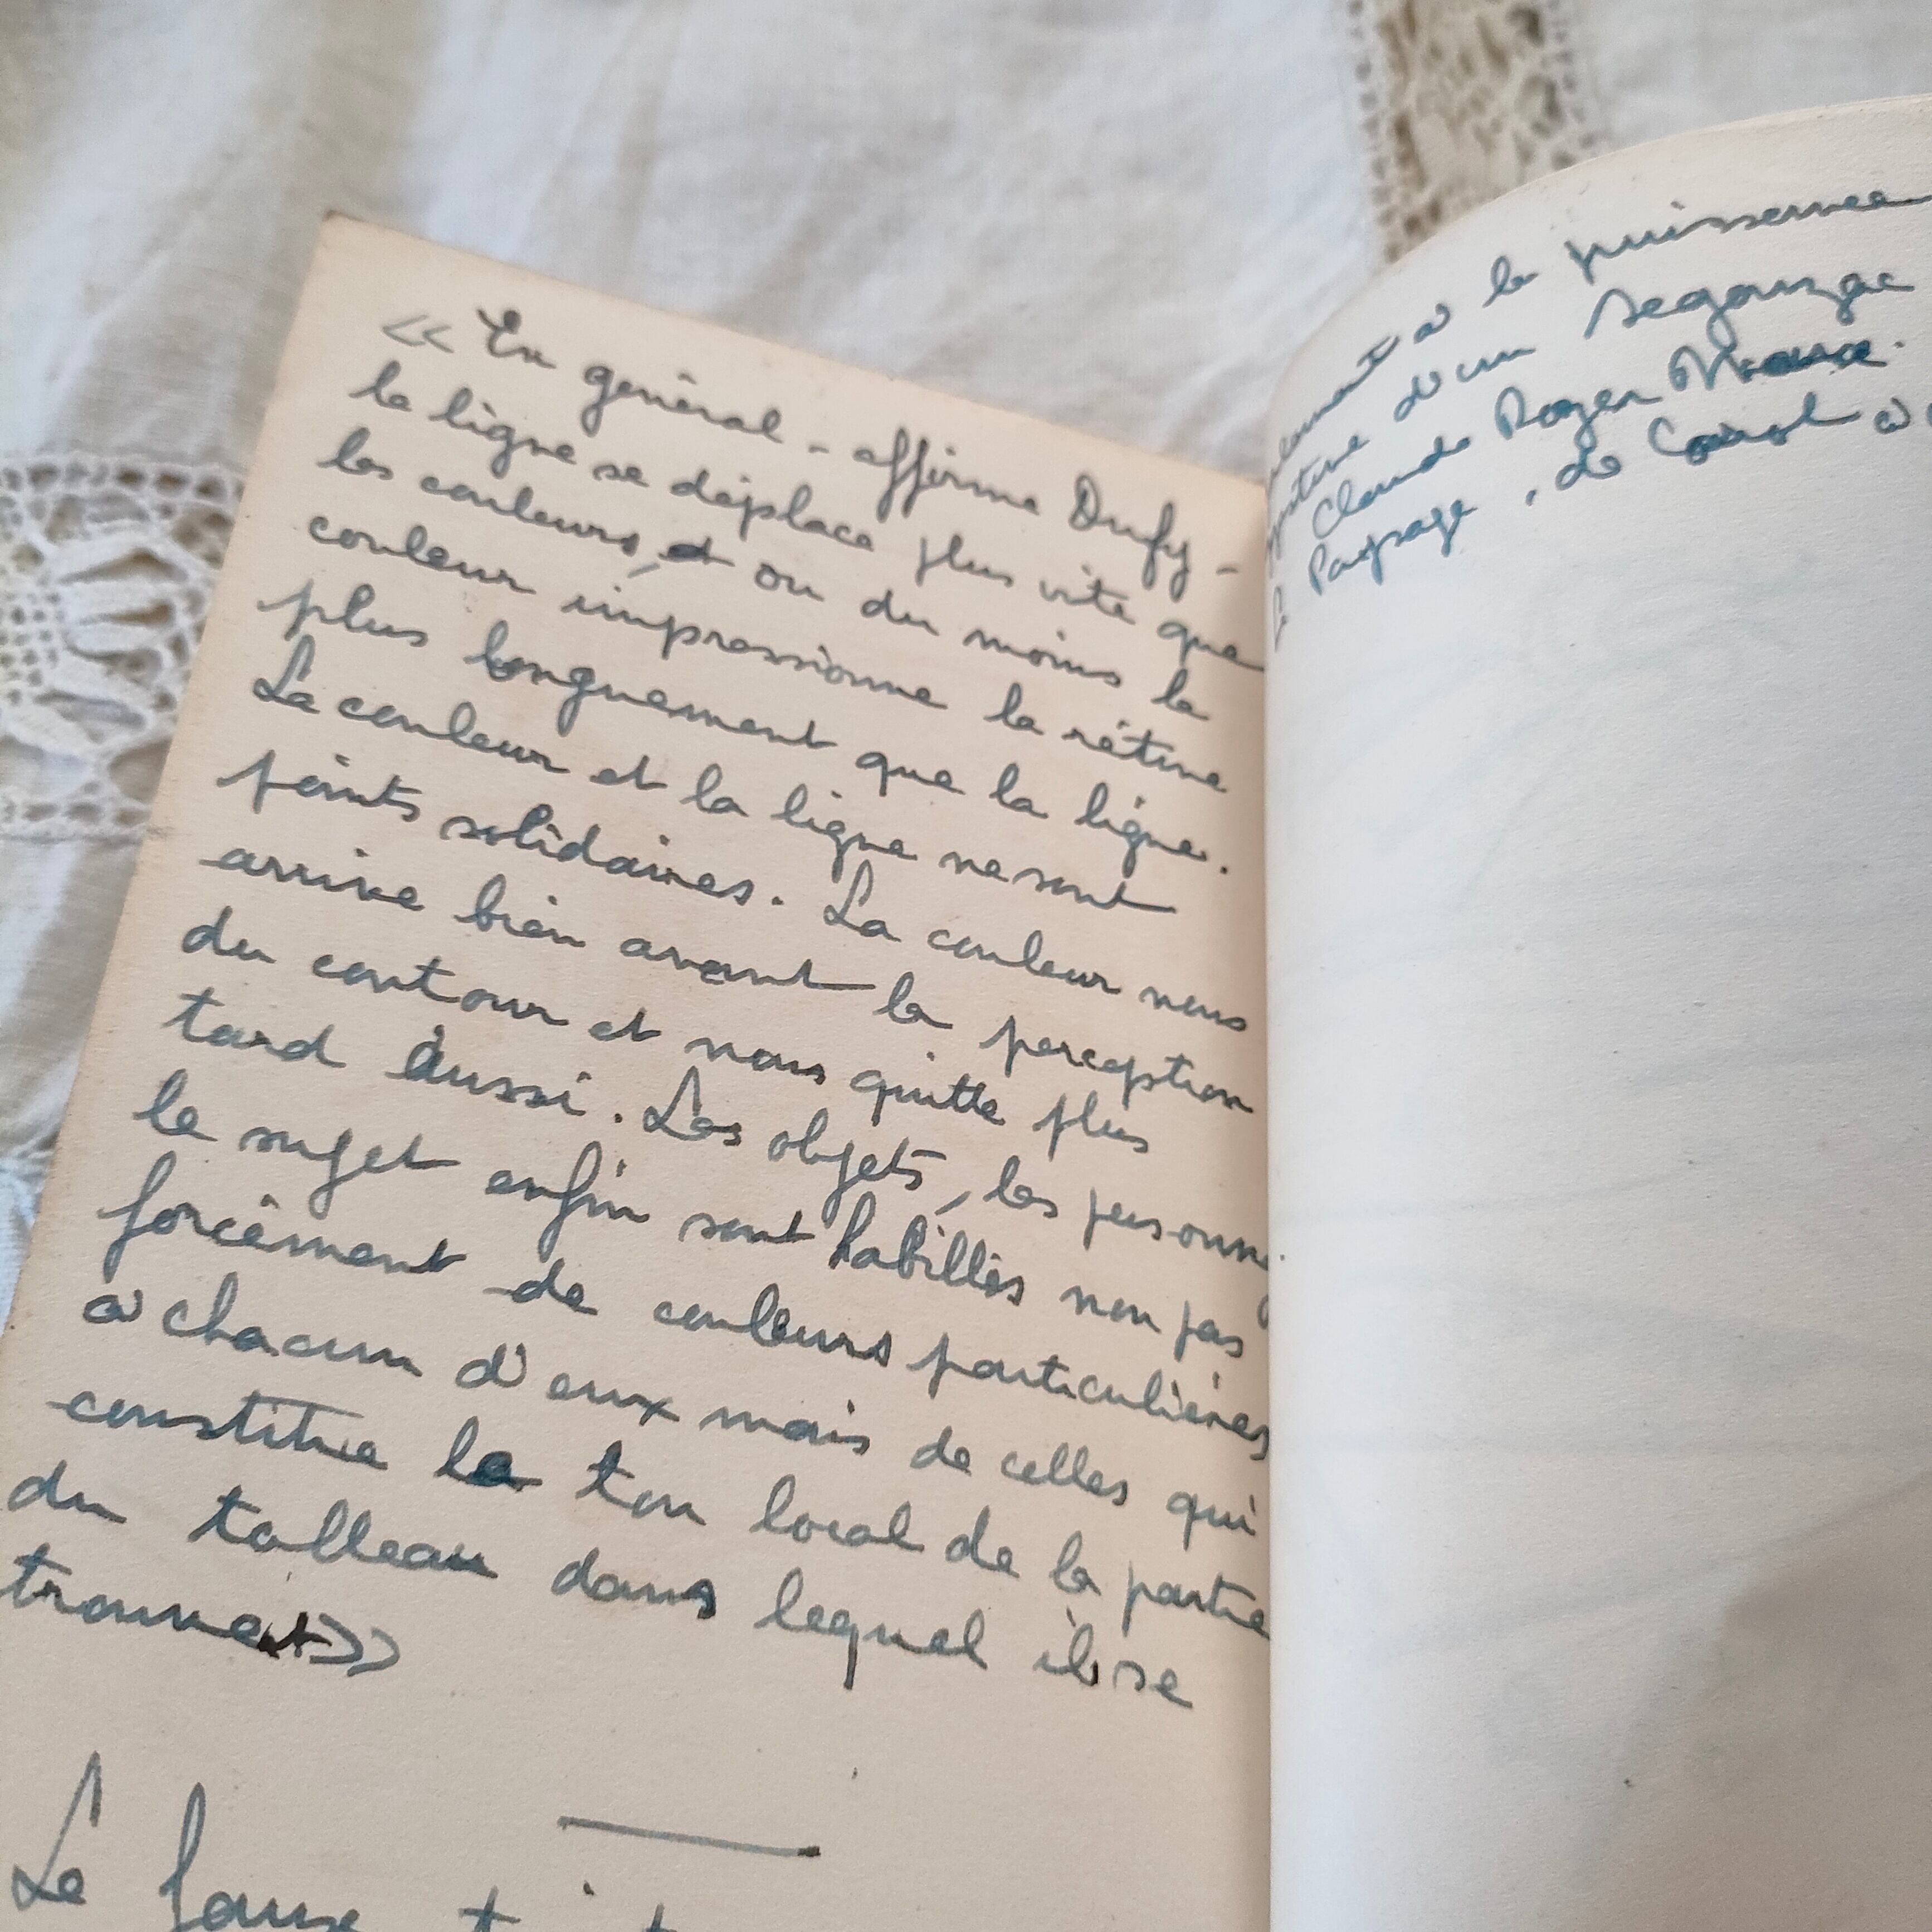 « En général - affirme Dufy -
la ligne se déplace plus vite que
les couleurs, et ou du moins la
couleur impressionne la rétine
plus longuement que la ligne.
La couleur et la ligne ne sont
points solidaires. La couleur nous
arrive bien avant la perception
du contour et nous quitte plus
tard aussi. Les objets, les personnag
le sujet enfin sont habillés non pas
forcément de couleurs particulières
à chacun d'eux mais de celles qui
constitue le ton local de la partie
du tableau dans lequel il se
trouvent »
Le
à la puissance
d'un Segonzac
Claude Roger Marx.
Paysage, de à